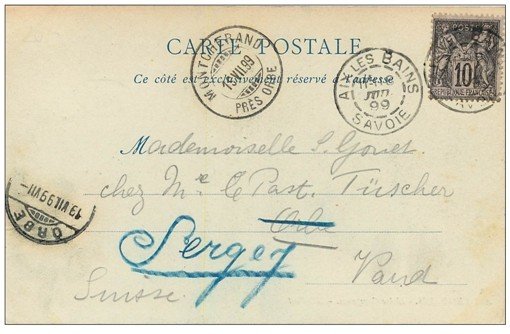 CARTE POSTALE
Ce côté est exclusivement réservé à l'adresse
MONTCHERAND
19 VII 99
PRÈS ORBE
AIX-LES BAINS
JUIL
99
SAVOIE
10
REPUBLIQUE FRANCAISE
Mademoiselle S. Gonet
chez Mr le Past. Tüscher
Orbe
Sergey
Suisse. Vaud
ORBE
19 VII 99 VII